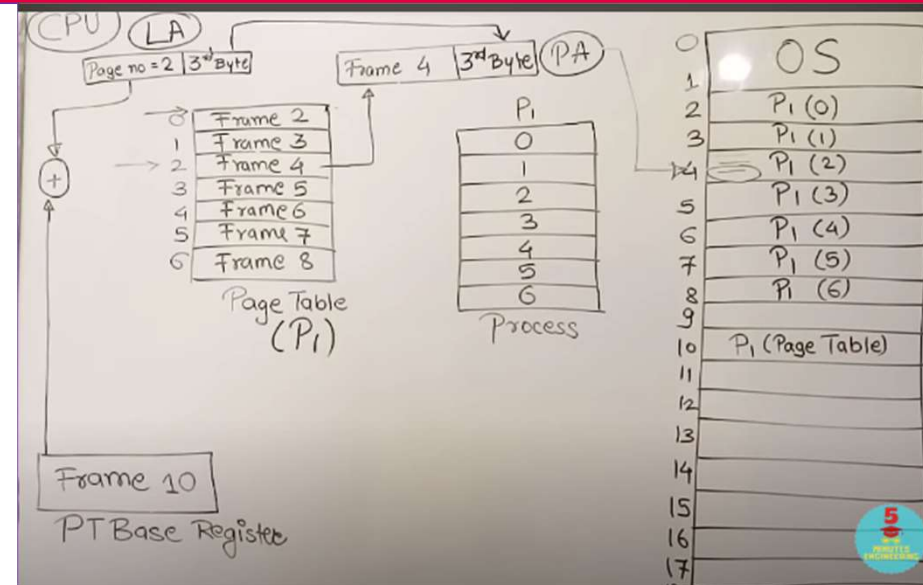 CPU
LA
Page no = 2 | 3rd Byte
Frame 4 | 3rd Byte
PA
+
0 Frame 2
1 Frame 3
2 Frame 4
3 Frame 5
4 Frame 6
5 Frame 7
6 Frame 8
Page Table
(P1)
P1
0
1
2
3
4
5
6
Process
Frame 10
PT Base Register
0 OS
1
2 P1 (0)
3 P1 (1)
4 P1 (2)
5 P1 (3)
6 P1 (4)
7 P1 (5)
8 P1 (6)
9
10 P1 (Page Table)
11
12
13
14
15
16
17
5
MINUTES
ENGINEERING